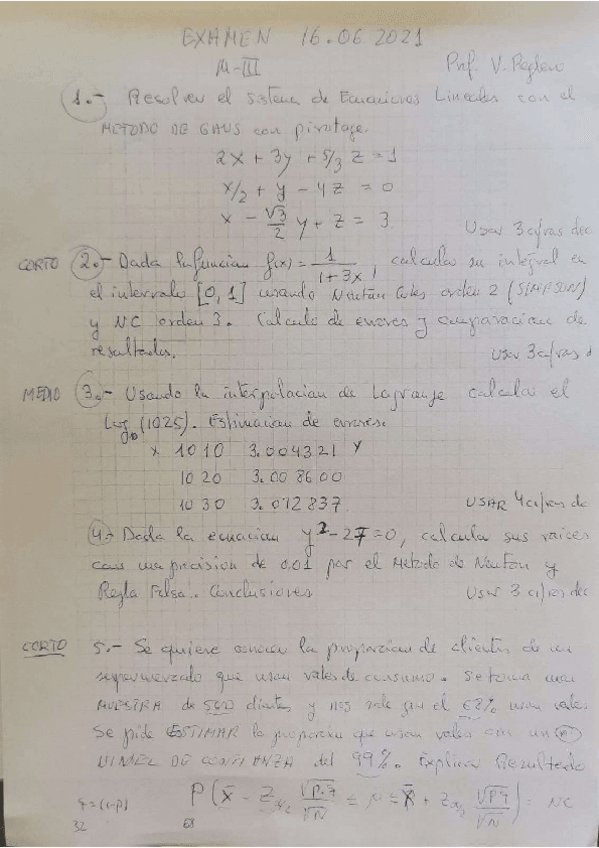 EXAMEN 16.06.2021
M-III Prof. V. Reglero
1.- Resolver el Sistema de Ecuaciones Lineales con el
METODO DE GAUS con pivotage.
2x + 3y + 5/3 z = 1
x/2 + y - 4z = 0
x - √3/2 y + z = 3.
Usar 3 cifras dec
CORTO 2.- Dada la funcion f(x) = 1/(1+3x), calcula su integral en
el intervalo [0,1] usando Newton Cotes orden 2 (SIMPSON)
y NC orden 3. Calculo de errores y comparacion de
resultados. Usar 3 cifras d
MEDIO 3.- Usando la interpolacion de Lagrange calcula el
Log10 (1025). Estimacion de errores.
x 1010 3.004321 y
1020 3.008600
1030 3.012837 USAR 4 cifras de
4.- Dada la ecuacion y²-27=0, calcula sus raices
con una precision de 0.01 por el Metodo de Newton y
Regla Falsa. Conclusiones Usar 3 cifras dec
CORTO 5.- Se quiere conocer la proporcion de clientes de un
supermercado que usan vales de consumo. Se toma una
MUESTRA de 500 clientes y nos sale que el 68% usan vales
Se pide ESTIMAR la proporcion que usan vales con un
NIVEL DE CONFIANZA del 99%. Explica Resultado
q=(1-p) P(x̄ - Zα/2 √p.q/√N ≤ μ ≤ x̄ + Zα/2 √p.q/√N) = NC
32 68